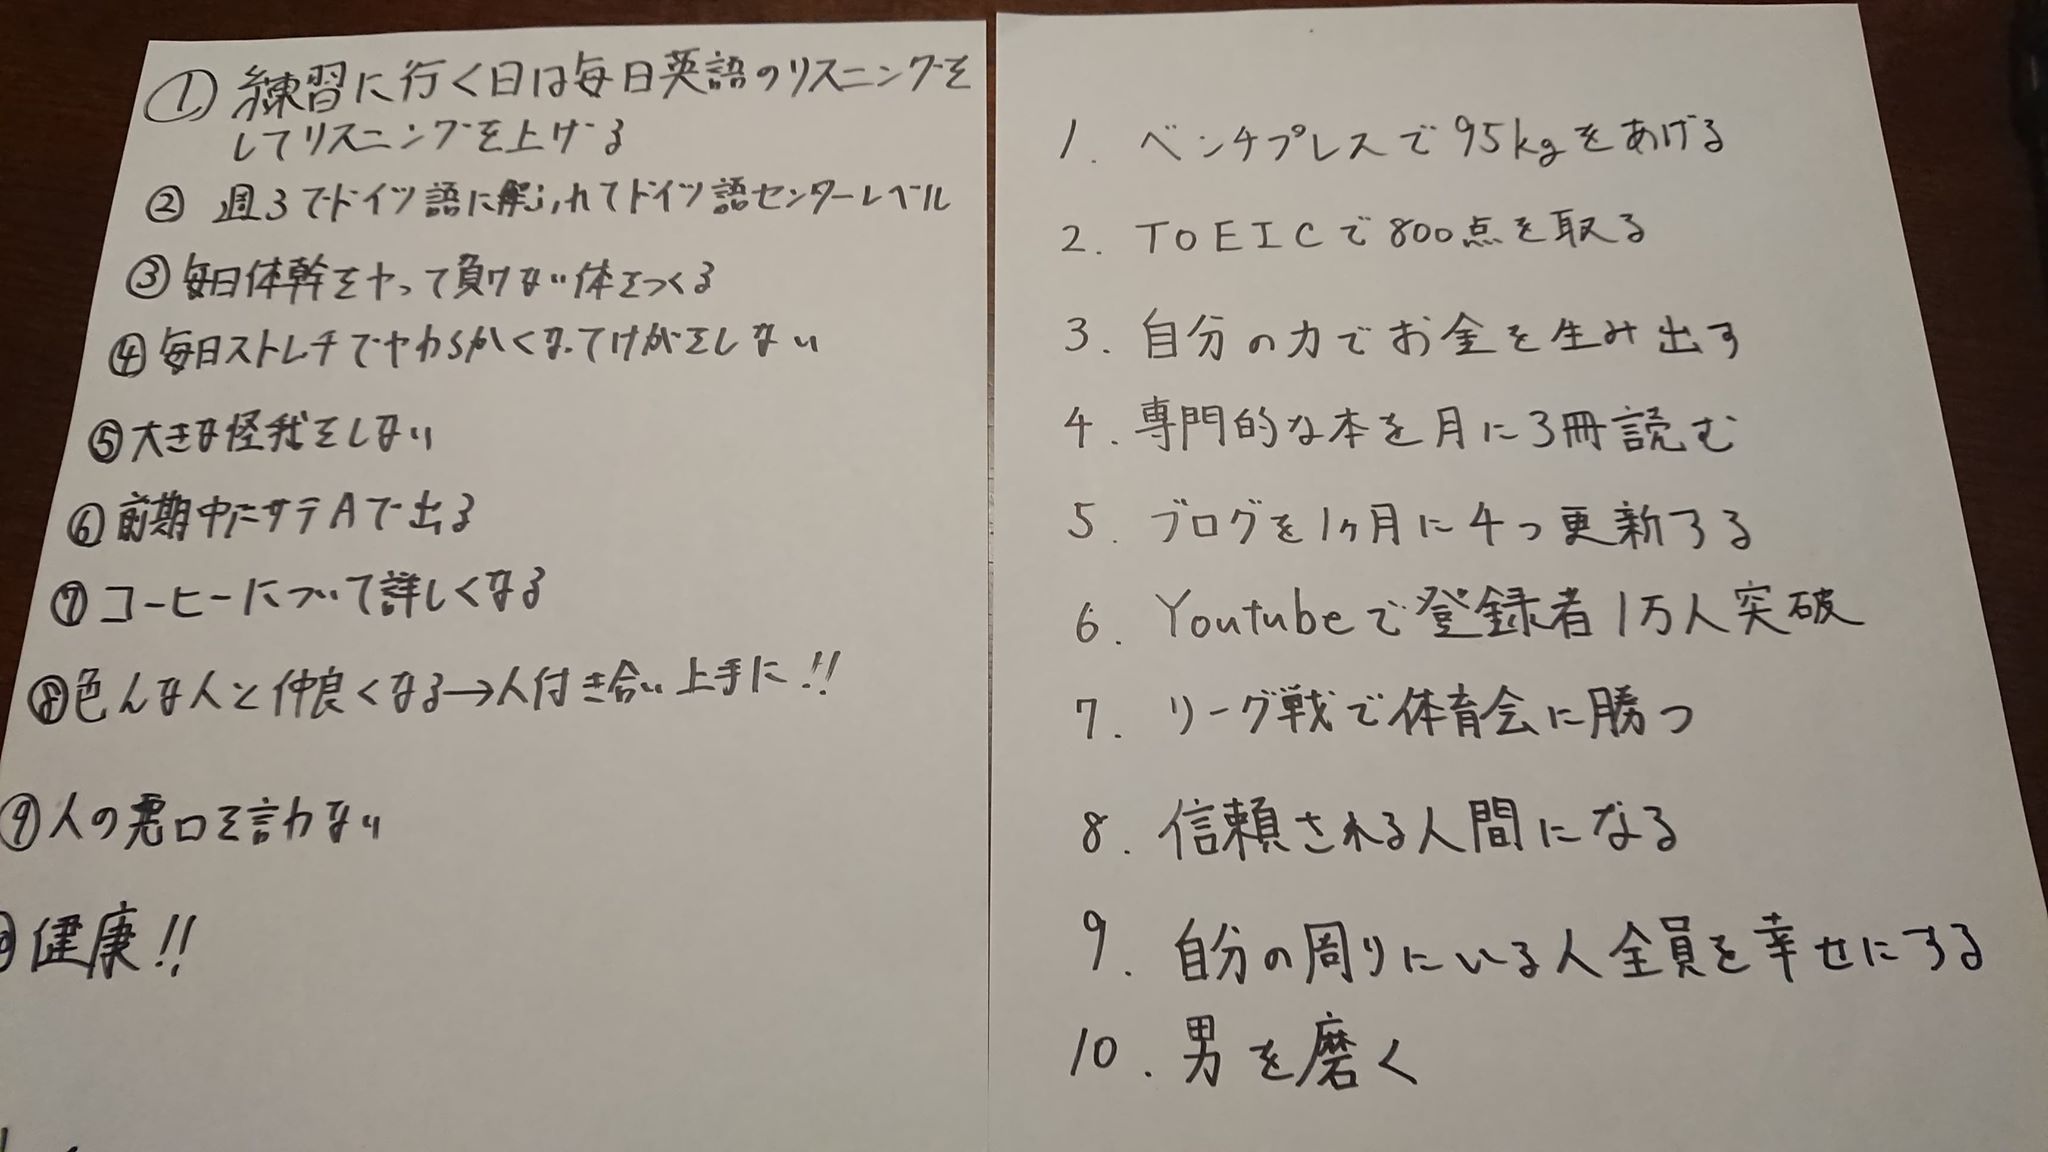 ① 練習に行く日は毎日英語のリスニングを
してリスニングを上げる
② 週3でドイツ語に触れてドイツ語センターレベル
③ 毎日体幹をやって負けない体をつくる
④ 毎日ストレチでやわらかくなってけがをしない
⑤ 大きな怪我をしない
⑥ 前期中にサテAで出る
⑦ コーヒーについて詳しくなる
⑧ 色んな人と仲良くなる→人付き合い上手に!!
⑨ 人の悪口を言わない
健康!!
1. ベンチプレスで95kgをあげる
2. TOEICで800点を取る
3. 自分の力でお金を生み出す
4. 専門的な本を月に3冊読む
5. ブログを1ヶ月に4つ更新する
6. Youtubeで登録者1万人突破
7. リーグ戦で体育会に勝つ
8. 信頼される人間になる
9. 自分の周りにいる人全員を幸せにする
10. 男を磨く